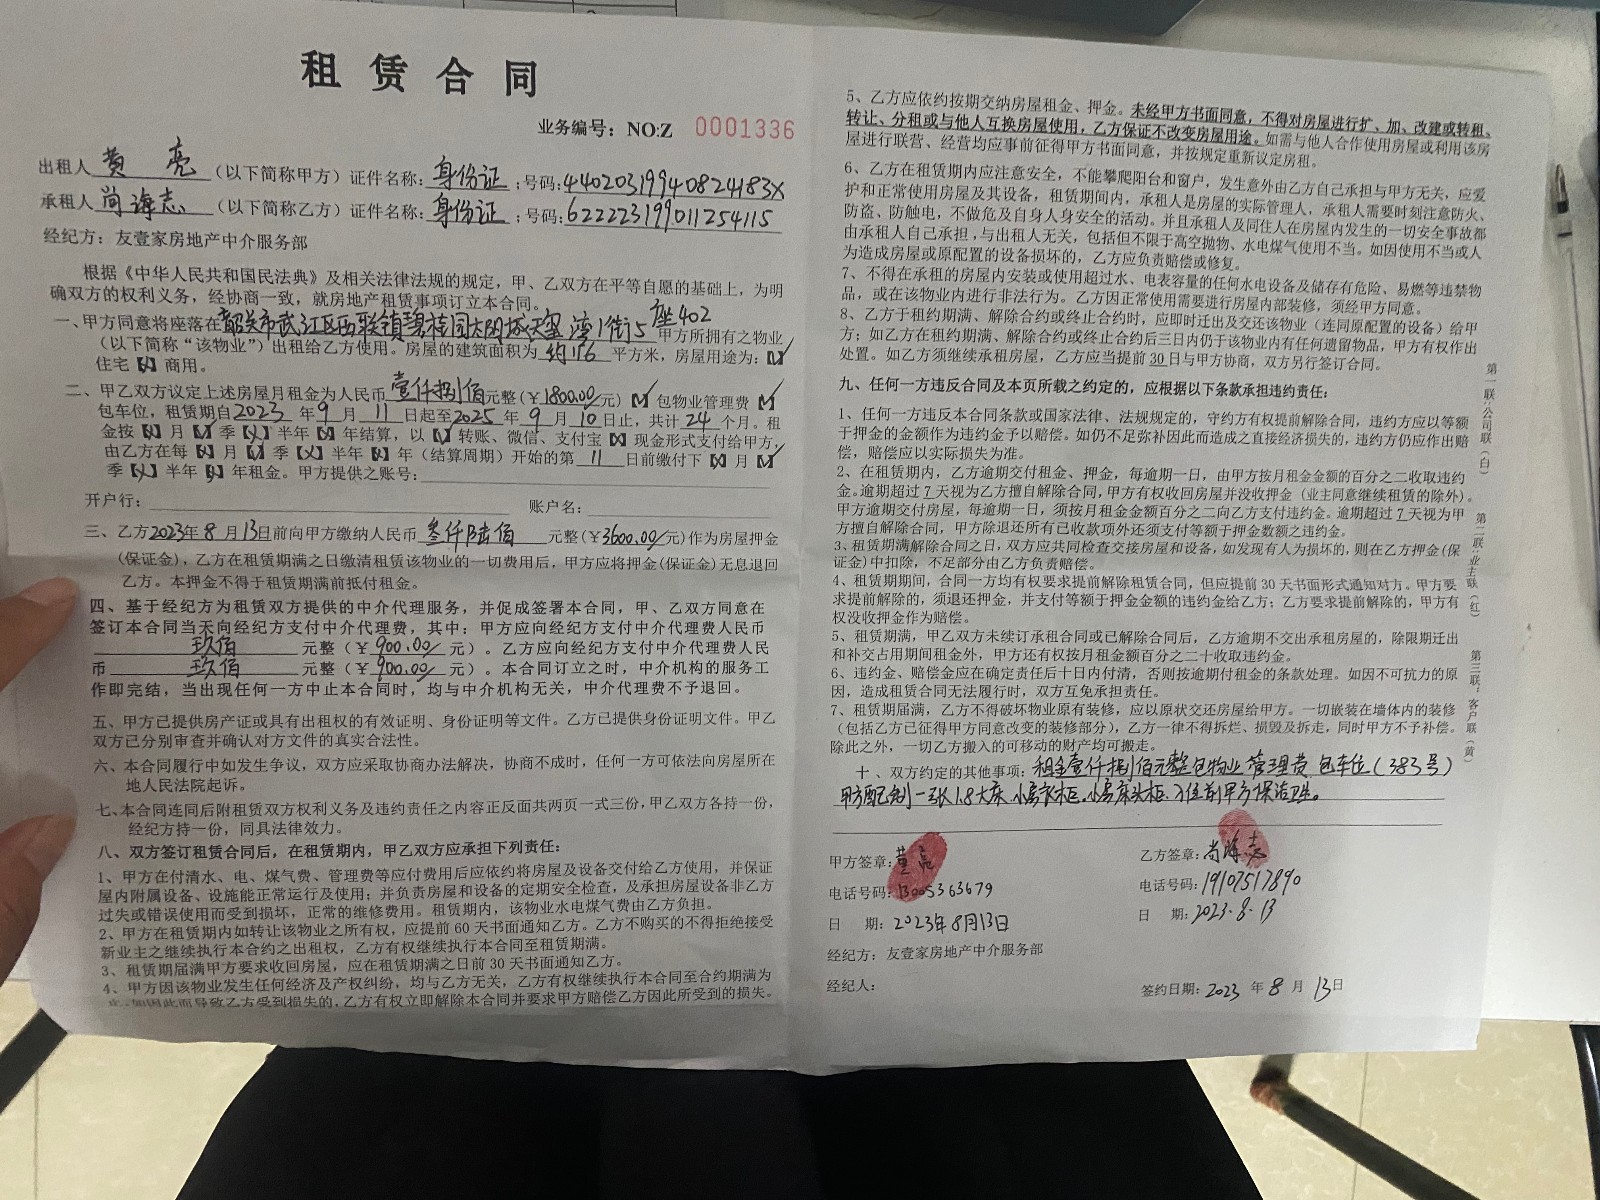 租赁合同
业务编号：NO:Z 0001336
出租人 黄亮 （以下简称甲方）证件名称：身份证；号码：44020319940824183X
承租人 尚海志 （以下简称乙方）证件名称：身份证；号码：622223199011254115
经纪方：友壹家房地产中介服务部
根据《中华人民共和国民法典》及相关法律法规的规定，甲、乙双方在平等自愿的基础上，为明
确双方的权利义务，经协商一致，就房地产租赁事项订立本合同。
一、甲方同意将座落在韶关市武江区西联镇碧桂园太阳城天玺湾1街5座402甲方所拥有之物业
（以下简称“该物业”）出租给乙方使用。房屋的建筑面积为 约116 平方米，房屋用途为：【√】
住宅【×】商用。
二、甲乙双方议定上述房屋月租金为人民币 壹仟捌佰 元整（￥1800.00/元）【√】包物业管理费【√】
包车位，租赁期自2023年9月11日起至2025年9月10日止，共计24个月。租
金按【×】月【√】季【×】半年【×】年结算，以【√】转账、微信、支付宝【×】现金形式支付给甲方，
由乙方在每【×】月【√】季【×】半年【×】年（结算周期）开始的第 11 日前缴付下【×】月【√】
季【×】半年【×】年租金。甲方提供之账号：
开户行： 账户名：
三、乙方2023年8月13日前向甲方缴纳人民币 叁仟陆佰 元整（￥3600.00/元）作为房屋押金
（保证金），乙方在租赁期满之日缴清租赁该物业的一切费用后，甲方应将押金（保证金）无息退回
乙方。本押金不得于租赁期满前抵付租金。
四、基于经纪方为租赁双方提供的中介代理服务，并促成签署本合同，甲、乙双方同意在
签订本合同当天向经纪方支付中介代理费，其中：甲方应向经纪方支付中介代理费人民币
玖佰 元整（￥900.00/元）。乙方应向经纪方支付中介代理费人民
币 玖佰 元整（￥900.00/元）。本合同订立之时，中介机构的服务工
作即完结，当出现任何一方中止本合同时，均与中介机构无关，中介代理费不予退回。
五、甲方已提供房产证或具有出租权的有效证明、身份证明等文件。乙方已提供身份证明文件。甲乙
双方已分别审查并确认对方文件的真实合法性。
六、本合同履行中如发生争议，双方应采取协商办法解决，协商不成时，任何一方可依法向房屋所在
地人民法院起诉。
七、本合同连同后附租赁双方权利义务及违约责任之内容正反面共两页一式三份，甲乙双方各持一份，
经纪方持一份，同具法律效力。
八、双方签订租赁合同后，在租赁期内，甲乙双方应承担下列责任：
1、甲方在付清水、电、煤气费、管理费等应付费用后应依约将房屋及设备交付给乙方使用，并保证
屋内附属设备、设施能正常运行及使用；并负责房屋和设备的定期安全检查，及承担房屋设备非乙方
过失或错误使用而受到损坏，正常的维修费用。租赁期内，该物业水电煤气费由乙方负担。
2、甲方在租赁期内如转让该物业之所有权，应提前60天书面通知乙方。乙方不购买的不得拒绝接受
新业主之继续执行本合约之出租权，乙方有权继续执行本合同至租赁期满。
3、租赁期届满甲方要求收回房屋，应在租赁期满之日前30天书面通知乙方。
4、甲方因该物业发生任何经济及产权纠纷，均与乙方无关，乙方有权继续执行本合同至合约期满为
止，如因此而导致乙方受到损失的，乙方有权立即解除本合同并要求甲方赔偿乙方因此所受到的损失。
5、乙方应依约按期交纳房屋租金、押金。未经甲方书面同意，不得对房屋进行扩、加、改建或转租、
转让、分租或与他人互换房屋使用，乙方保证不改变房屋用途。如需与他人合作使用房屋或利用该房
屋进行联营、经营均应事前征得甲方书面同意，并按规定重新议定房租。
6、乙方在租赁期内应注意安全，不能攀爬阳台和窗户，发生意外由乙方自己承担与甲方无关，应爱
护和正常使用房屋及其设备，租赁期间内，承租人是房屋的实际管理人，承租人需要时刻注意防火、
防盗、防触电，不做危及自身人身安全的活动。并且承租人及同住人在房屋内发生的一切安全事故都
由承租人自己承担，与出租人无关，包括但不限于高空抛物、水电煤气使用不当。如因使用不当或人
为造成房屋或原配置的设备损坏的，乙方应负责赔偿或修复。
7、不得在承租的房屋内安装或使用超过水、电表容量的任何水电设备及储存有危险、易燃等违禁物
品，或在该物业内进行非法行为。乙方因正常使用需要进行房屋内部装修，须经甲方同意。
8、乙方于租约期满、解除合约或终止合约时，应即时迁出及交还该物业（连同原配置的设备）给甲
方；如乙方在租约期满、解除合约或终止合约后三日内仍于该物业内有任何遗留物品，甲方有权作出
处置。如乙方须继续承租房屋，乙方应当提前30日与甲方协商，双方另行签订合同。
九、任何一方违反合同及本页所载之约定的，应根据以下条款承担违约责任：
1、任何一方违反本合同条款或国家法律、法规规定的，守约方有权提前解除合同，违约方应以等额
于押金的金额作为违约金予以赔偿。如仍不足弥补因此而造成之直接经济损失的，违约方仍应作出赔
偿，赔偿应以实际损失为准。
2、在租赁期内，乙方逾期交付租金、押金，每逾期一日，由甲方按月租金金额的百分之二收取违约
金。逾期超过7天视为乙方擅自解除合同，甲方有权收回房屋并没收押金（业主同意继续租赁的除外）。
甲方逾期交付房屋，每逾期一日，须按月租金金额百分之二向乙方支付违约金。逾期超过7天视为甲
方擅自解除合同，甲方除退还所有已收款项外还须支付等额于押金数额之违约金。
3、租赁期满解除合同之日，双方应共同检查交接房屋和设备，如发现有人为损坏的，则在乙方押金（保
证金）中扣除，不足部分由乙方负责赔偿。
4、租赁期期间，合同一方均有权要求提前解除租赁合同，但应提前30天书面形式通知对方。甲方要
求提前解除的，须退还押金，并支付等额于押金金额的违约金给乙方；乙方要求提前解除的，甲方有
权没收押金作为赔偿。
5、租赁期满，甲乙双方未续订承租合同或已解除合同后，乙方逾期不交出承租房屋的，除限期迁出
和补交占用期间租金外，甲方还有权按月租金额百分之二十收取违约金。
6、违约金、赔偿金应在确定责任后十日内付清，否则按逾期付租金的条款处理。如因不可抗力的原
因，造成租赁合同无法履行时，双方互免承担责任。
7、租赁期届满，乙方不得破坏物业原有装修，应以原状交还房屋给甲方。一切嵌装在墙体内的装修
（包括乙方已征得甲方同意改变的装修部分），乙方一律不得拆烂、损毁及拆走，同时甲方不予补偿。
除此之外，一切乙方搬入的可移动的财产均可搬走。
十、双方约定的其他事项：租金壹仟捌佰元整包物业管理费 包车位（383号）
甲方配制一张1.8大床、小房衣柜、小房床头柜、入住前甲方保洁卫生。
甲方签章：黄亮
电话号码：13005363679
日 期：2023年8月13日
经纪方：友壹家房地产中介服务部
经纪人：
乙方签章：尚海志
电话号码：19107517890
日 期：2023.8.13
签约日期：2023年8月13日
第一联：公司联（白）
第二联：业主联（红）
第三联：客户联（黄）